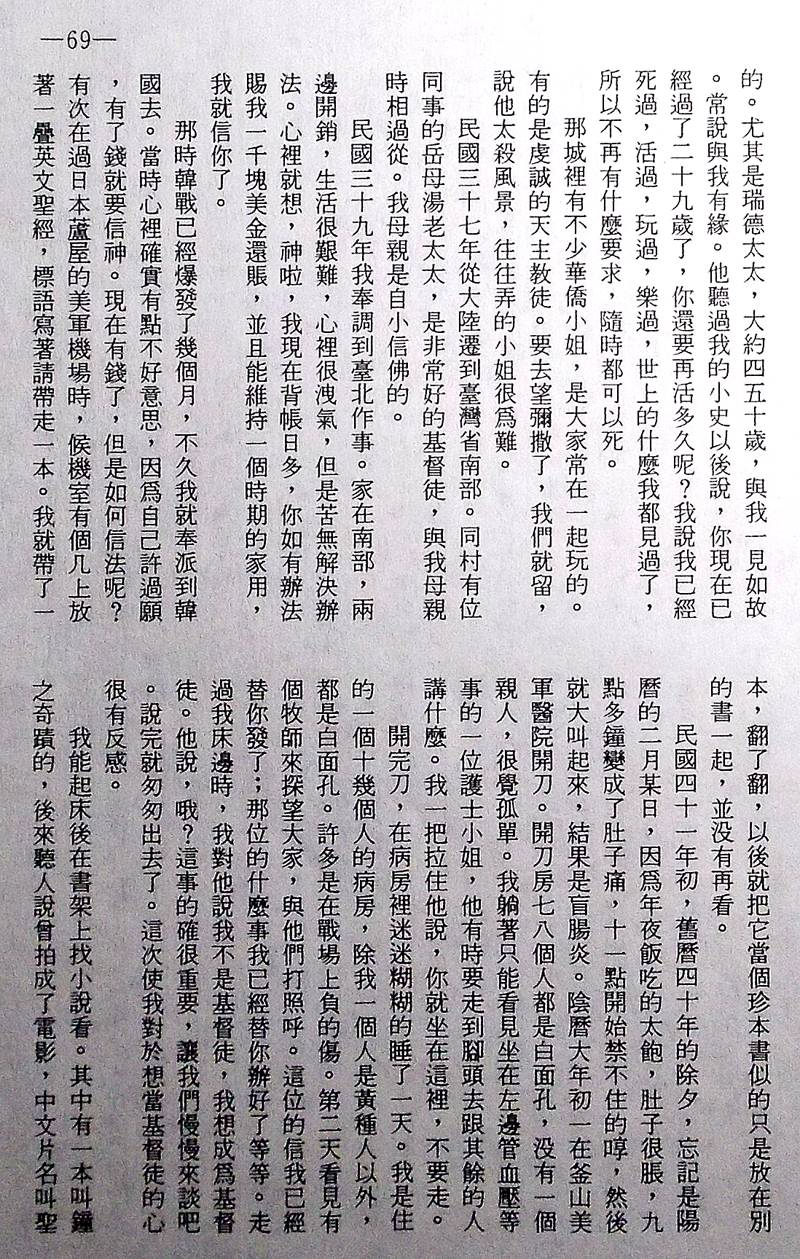 —69—
的。尤其是瑞德太太，大約四五十歲，與我一見如故
。常說與我有緣。他聽過我的小史以後說，你現在已
經過了二十九歲了，你還要再活多久呢？我說我已經
死過，活過，玩過，樂過，世上的什麼我都見過了，
所以不再有什麼要求，隨時都可以死。
那城裡有不少華僑小姐，是大家常在一起玩的。
有的是虔誠的天主教徒。要去望彌撒了，我們就留，
說他太殺風景，往往弄的小姐很爲難。
民國三十七年從大陸遷到臺灣省南部。同村有位
同事的岳母湯老太太，是非常好的基督徒，與我母親
時相過從。我母親是自小信佛的。
民國三十九年我奉調到臺北作事。家在南部，兩
邊開銷，生活很艱難，心裡很洩氣，但是苦無解決辦
法。心裡就想，神啦，我現在背帳日多，你如有辦法
賜我一千塊美金還賬，並且能維持一個時期的家用，
我就信你了。
那時韓戰已經爆發了幾個月，不久我就奉派到韓
國去。當時心裡確實有點不好意思，因爲自己許過願
，有了錢就要信神。現在有錢了，但是如何信法呢？
有次在過日本蘆屋的美軍機場時，候機室有個几上放
著一疊英文聖經，標語寫著請帶走一本。我就帶了一
本，翻了翻，以後就把它當個珍本書似的只是放在別
的書一起，並没有再看。
民國四十一年初，舊曆四十年的除夕，忘記是陽
曆的二月某日，因爲年夜飯吃的太飽，肚子很脹，九
點多鐘變成了肚子痛，十一點開始禁不住的哼，然後
就大叫起來，結果是盲腸炎。陰曆大年初一在釜山美
軍醫院開刀。開刀房七八個人都是白面孔，没有一個
親人，很覺孤單。我躺著只能看見坐在左邊管血壓等
事的一位護士小姐，他有時要走到腳頭去跟其餘的人
講什麼。我一把拉住他說，你就坐在這裡，不要走。
開完刀，在病房裡迷迷糊糊的睡了一天。我是住
的一個十幾個人的病房，除我一個人是黃種人以外，
都是白面孔。許多是在戰場上負的傷。第二天看見有
個牧師來探望大家，與他們打照呼。這位的信我已經
替你發了；那位的什麼事我已經替你辦好了等等。走
過我床邊時，我對他說我不是基督徒，我想成爲基督
徒。他說，哦？這事的確很重要，讓我們慢慢來談吧
。說完就匆匆出去了。這次使我對於想當基督徒的心
很有反感。
我能起床後在書架上找小說看。其中有一本叫鐘
之奇蹟的，後來聽人說曾拍成了電影，中文片名叫聖